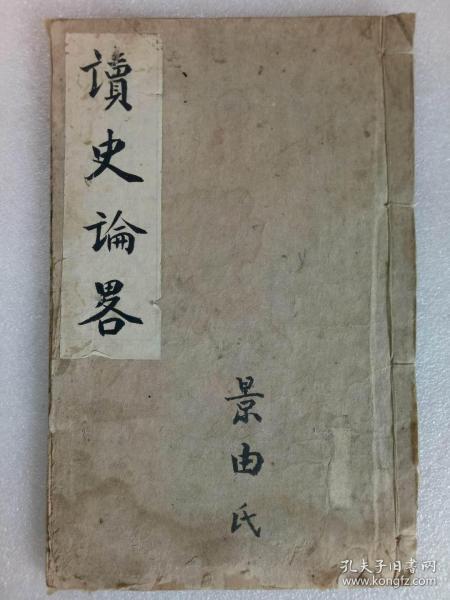 讀史論畧
景由氏
孔夫子旧书网
www.kongfz.com